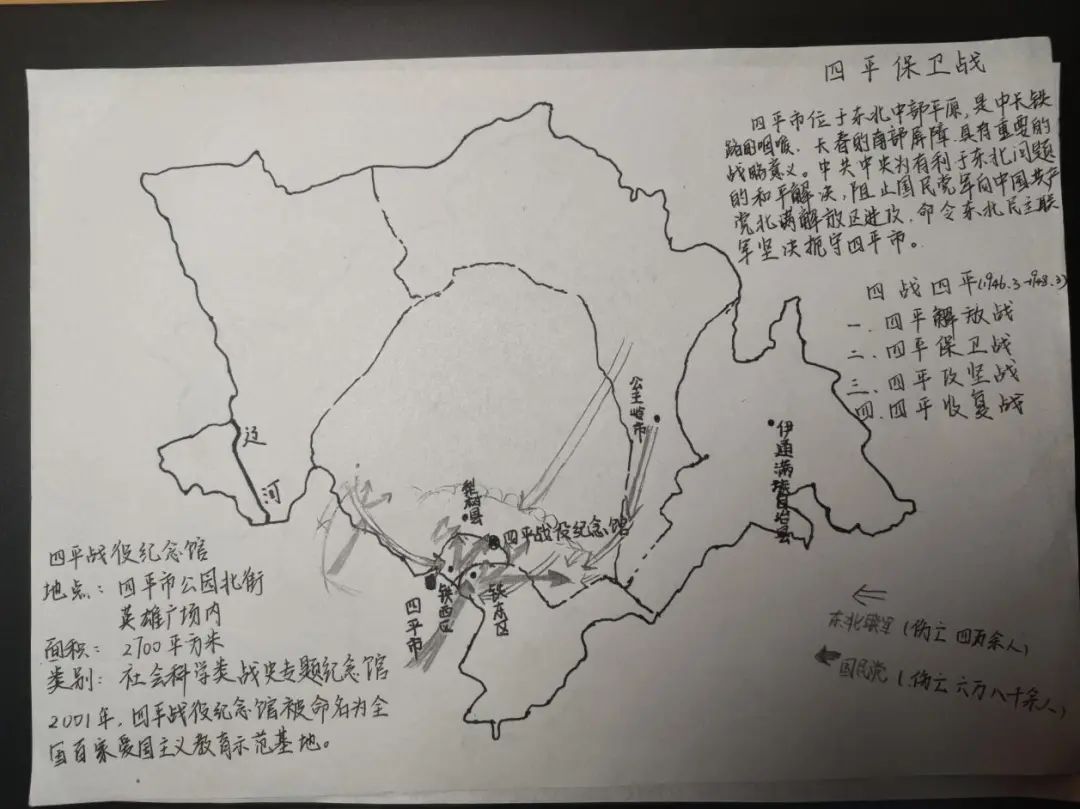 四平保卫战
四平市位于东北中部平原,是中长铁
路的咽喉、长春的南部屏障,具有重要的
战略意义。中共中央为有利于东北问题
的和平解决,阻止国民党军向中国共产
党北满解放区进攻,命令东北民主联
军坚决扼守四平市。
四战四平(1946.3-1948.3)
一、四平解放战
二、四平保卫战
三、四平攻坚战
四、四平收复战
公主岭市
伊通满族自治县
辽
河
梨树县
四平战役纪念馆
铁西区
铁东区
四平市
四平战役纪念馆
地点:四平市公园北街
英雄广场内
面积:2700平方米
类别:社会科学类战史专题纪念馆
2001年,四平战役纪念馆被命名为全
国百家爱国主义教育示范基地。
东北联军(伤亡四百余人)
国民党(伤亡六万八十余人)